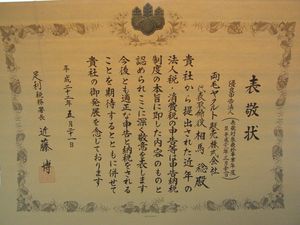 表敬状
優良申告法人
両毛ヤクルト販売株式会社
代表取締役 相馬 稔殿
貴社から提出された近年の
法人税・消費税の申告等は申告納税
制度の本旨に即した内容のものと
認められここに深く敬意を表します
今後とも適正な申告と納税をされる
ことを期待するとともに併せて
貴社の御発展を念じております
平成二十二年五月二十一日
足利税務署長 近藤 博